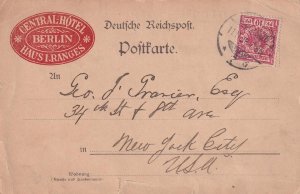 CENTRAL-HOTEL
BERLIN
HAUS I.RANGES
Deutsche Reichspost.
Postkarte.
An
Geo. J.
34th St & 8th Ave
in New York City
USA
Wohnung